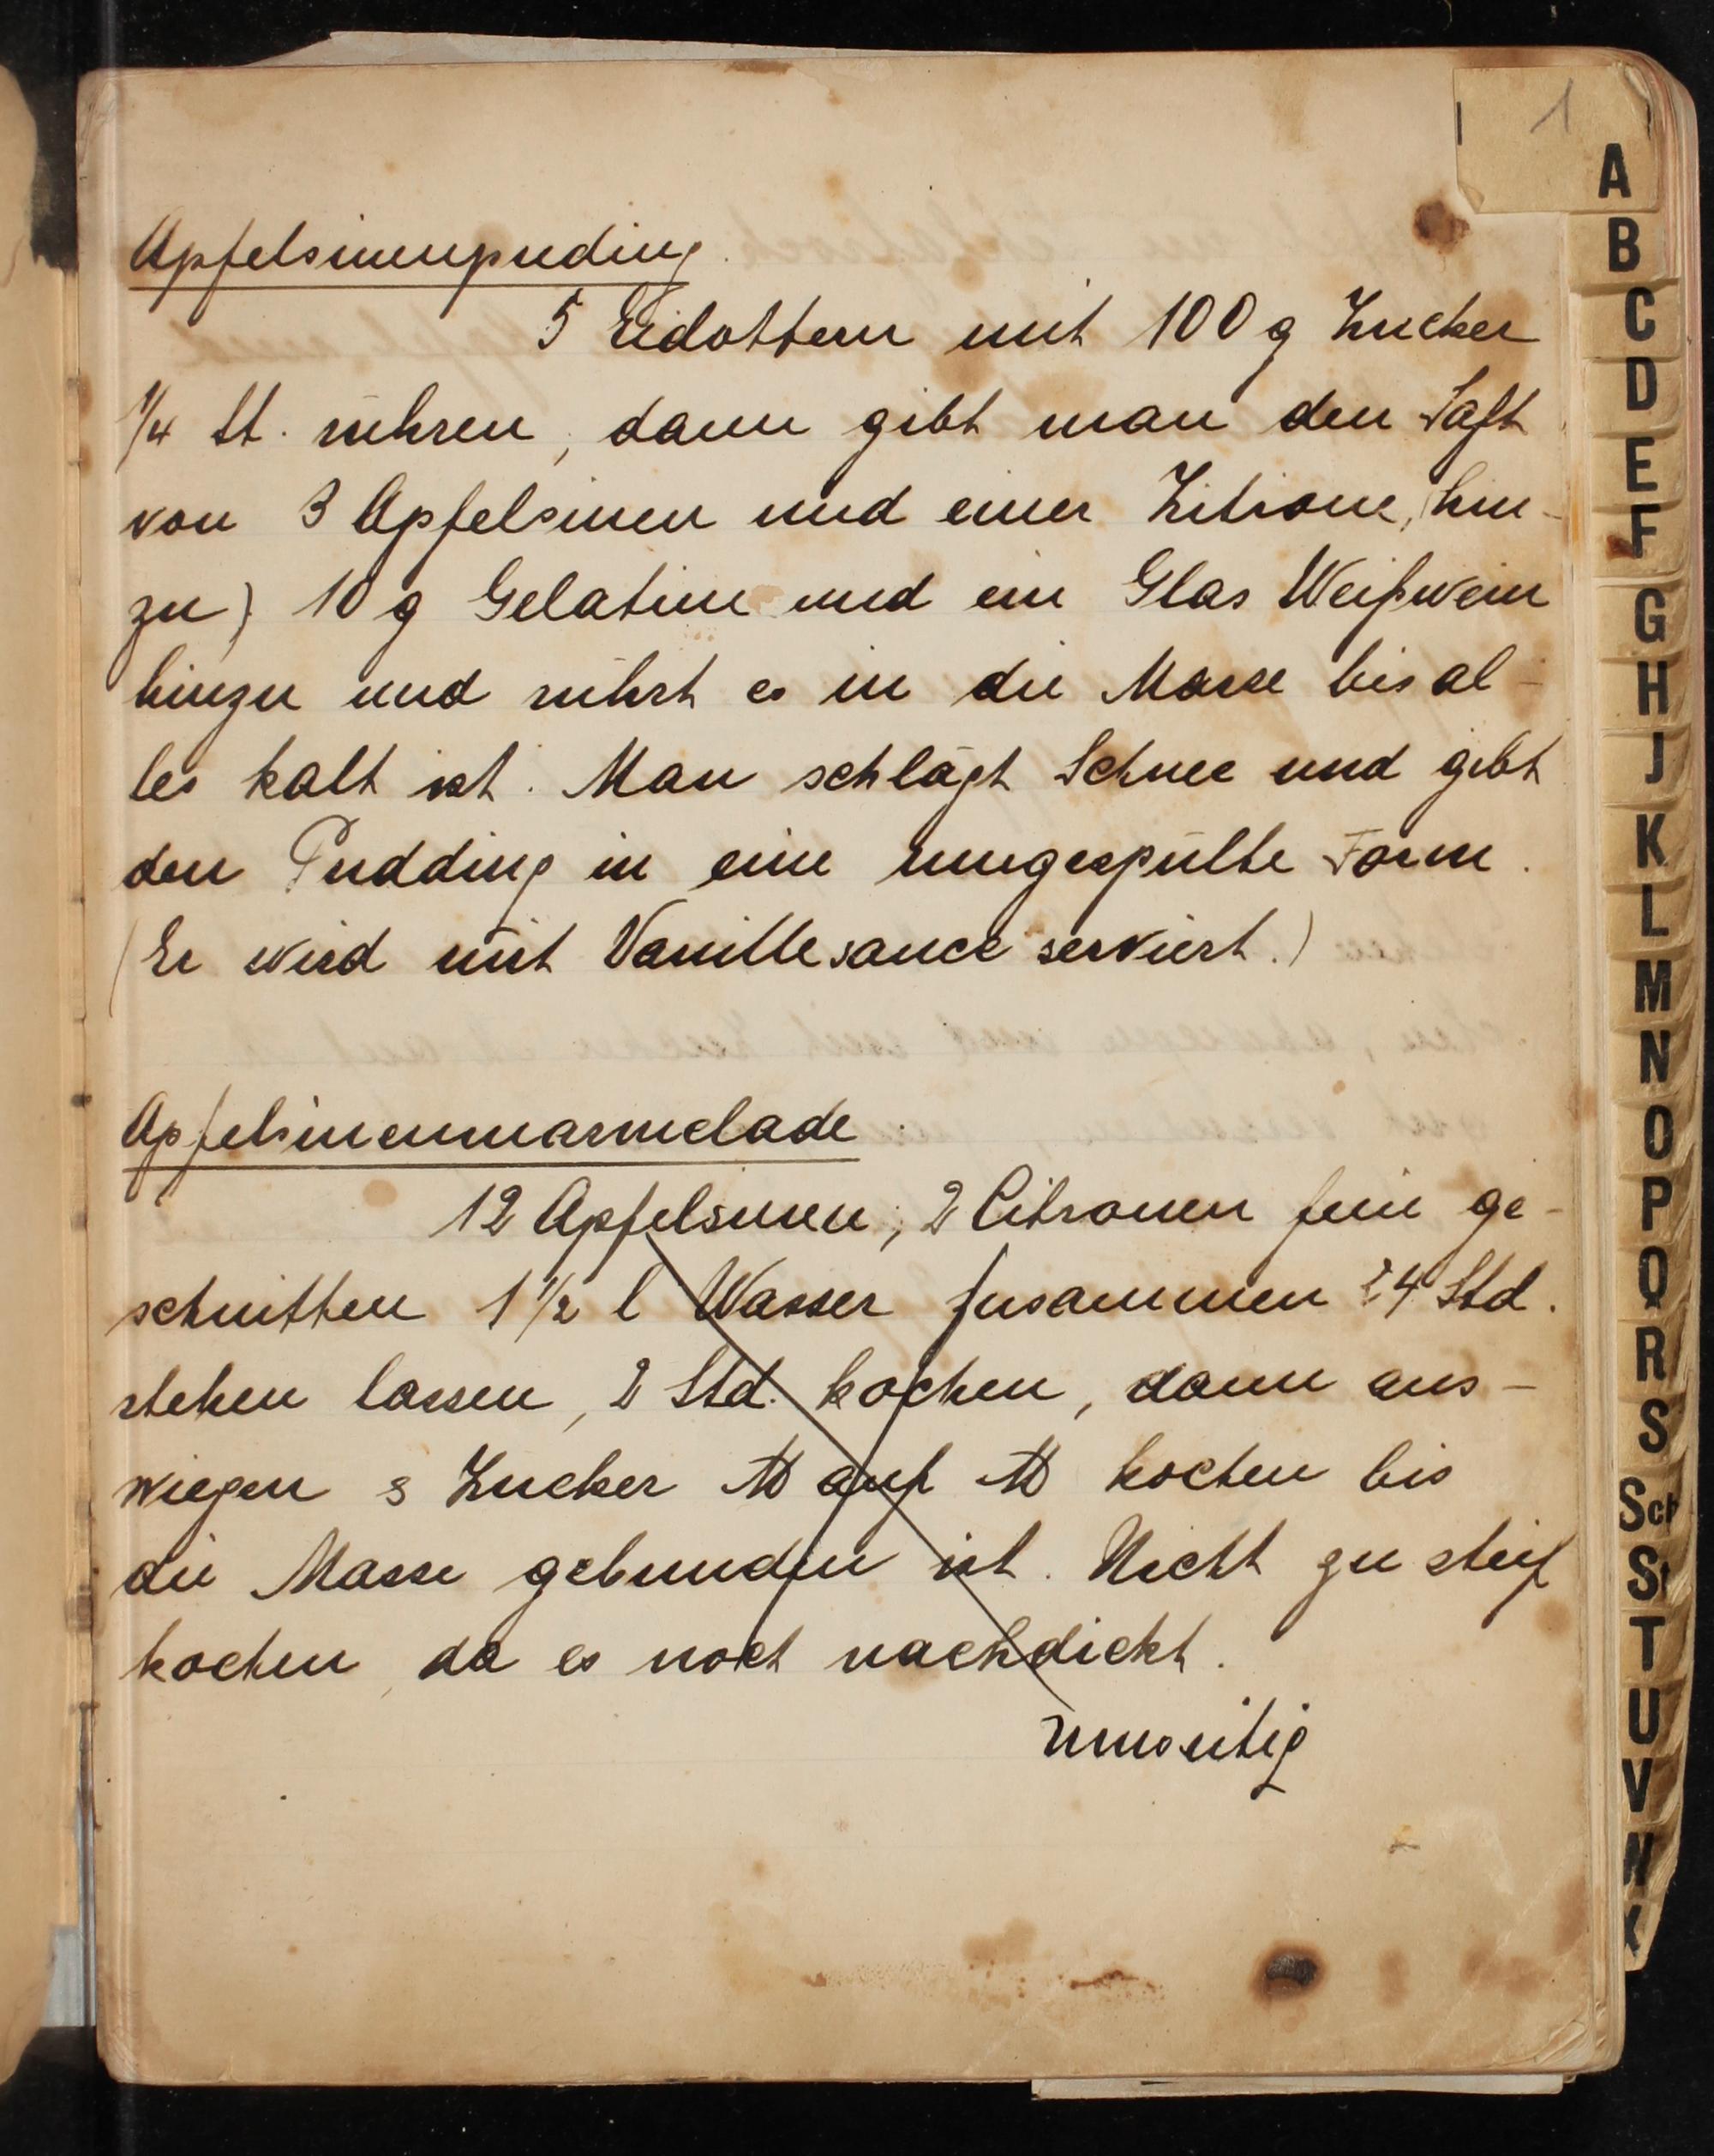 1
Apfelsinenpuding.
5 Eidottern mit 100 g Zucker
1/4 St. rühren, dann gibt man den Saft
von 3 Apfelsinen und einer Zitrone, (hin-
zu) 10 g Gelatine und ein Glas Weißwein
hinzu und rührt es in die Masse bis al-
les kalt ist. Man schlägt Schnee und gibt
den Pudding in eine umgespülte Form.
(Er wird mit Vanillesauce serviert.)
Apfelsinenmarmelade.
12 Apfelsinen, 2 Citronen fein ge-
schnitten 1 1/2 l Wasser zusammen 24 Std.
stehen lassen, 2 Std. kochen, dann aus-
wiegen Zucker ℔ auf ℔ kochen bis
die Masse gebunden ist. Nicht zu steif
kochen, da es noch nachdickt.
umseitig
A
B
C
D
E
F
G
H
J
K
L
M
N
O
P
Q
R
S
Sch
St
T
U
V